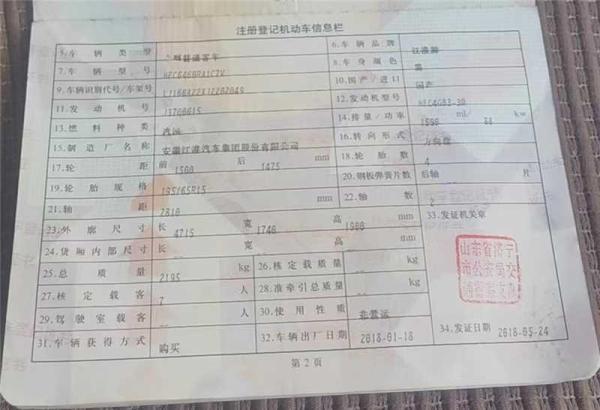 注册登记机动车信息栏
5.车辆类型 普通客车 6.车辆品牌
7.车辆型号 8.车身颜色 黑
9.车辆识别代号/车架号 10.国产/进口 国产
11.发动机号 12.发动机型号
13.燃料种类 汽油 14.排量/功率 ml/ kw
15.制造厂名称 安徽江淮汽车集团股份有限公司 16.转向形式 方向盘
17.轮距 前 后 1475 mm 18.轮胎数 4
19.轮胎规格 195/65R15 20.钢板弹簧片数 后轴 片
21.轴距 2810 mm 22.轴数 2
23.外廓尺寸 长 4715 宽 1740 高 mm 33.发证机关章
24.货厢内部尺寸 长 宽 高 mm
25.总质量 2195 kg 26.核定载质量 kg
27.核定载客 7 人 28.准牵引总质量 kg
29.驾驶室载客 人 30.使用性质 非营运
31.车辆获得方式 购买 32.车辆出厂日期 2018-01-18 34.发证日期 2018-05-24
山东省济宁
市公安局交
第2页